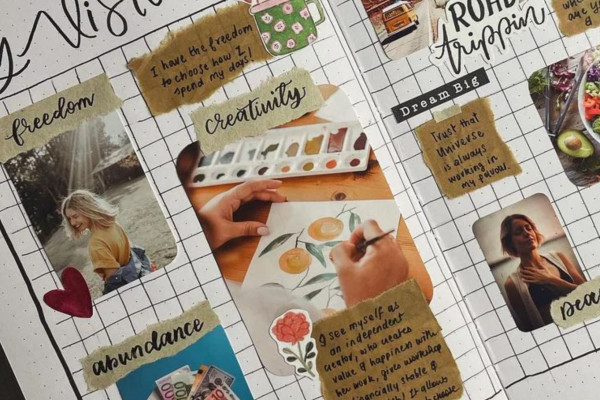 Vis
I have the freedom
to choose how I
spend my days
freedom
creativity
abundance
I see myself as
an independent
creator, who creates
value & happiness with
her work, gives workshop
financially stable &
It allows
ROAD
trippin
Dream Big
Trust that
Universe
is always
working in
my favour.
are y
peac